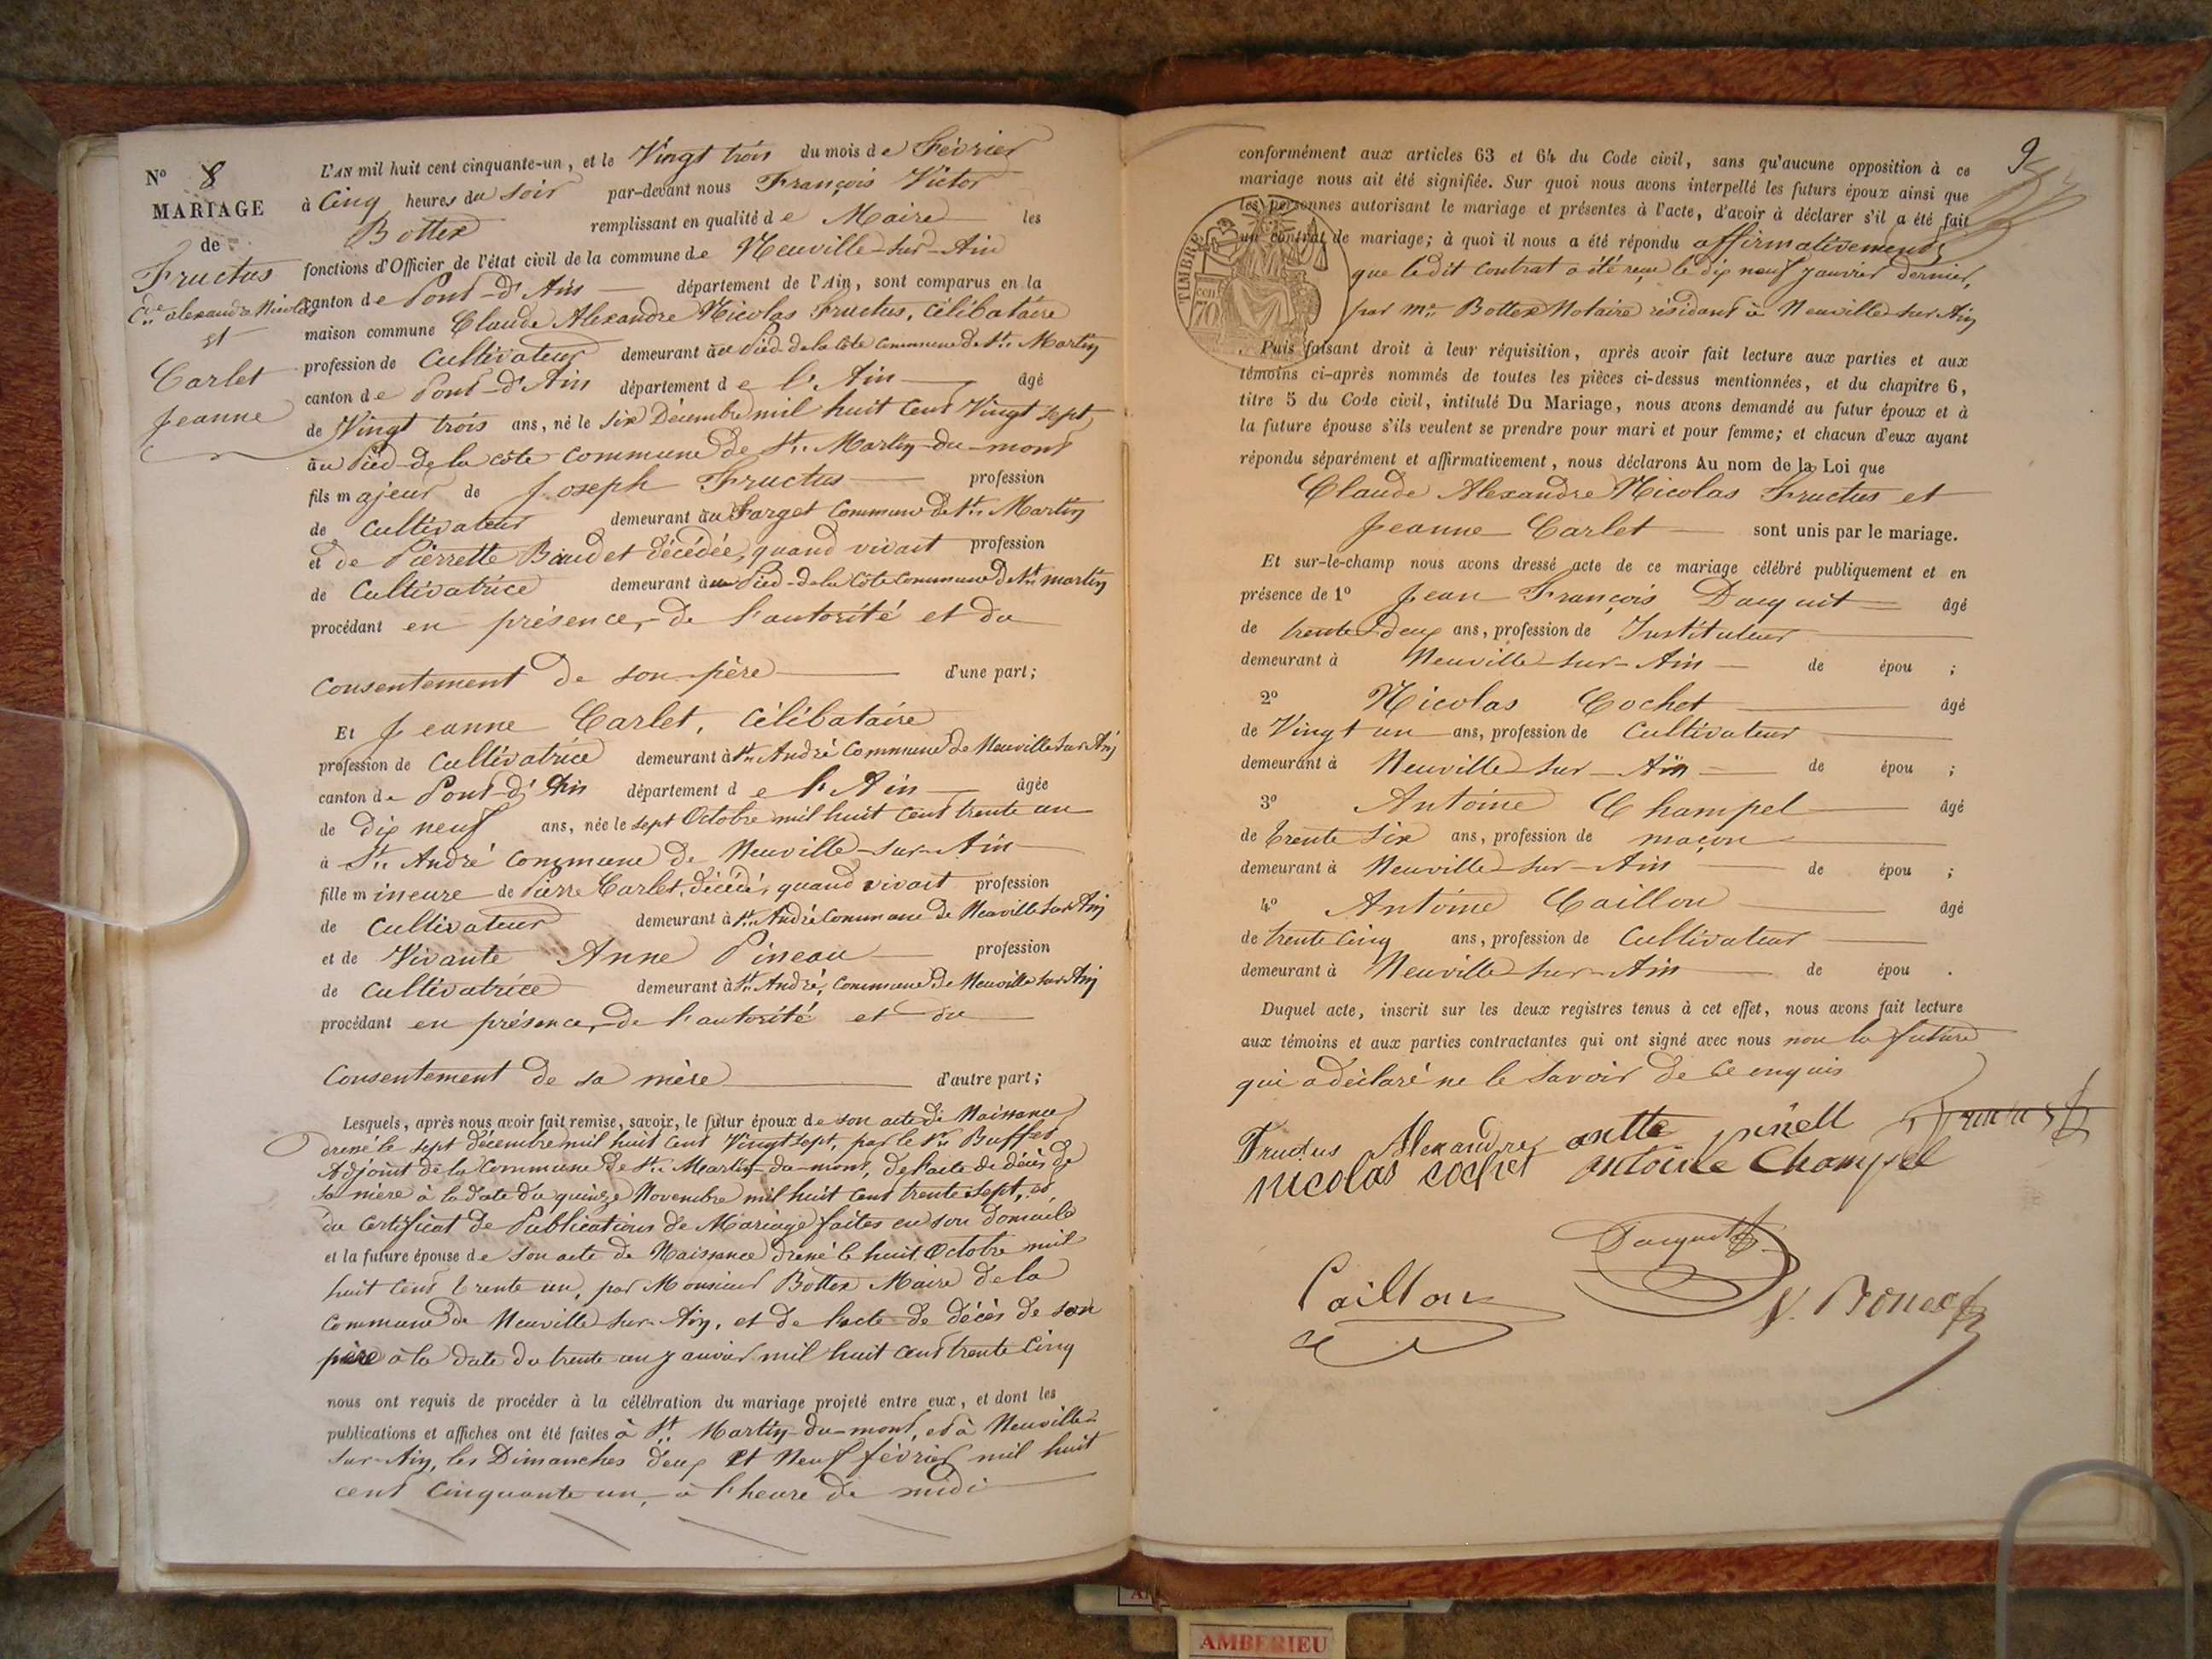 N° 8
MARIAGE
de
Fructus
Cde alexandre Nicolas
et
Carlet
Jeanne
L'AN mil huit cent cinquante-un, et le Vingt trois du mois de Février
à Cinq heures du soir par-devant nous François Victor
Bottex remplissant en qualité de Maire les
fonctions d'Officier de l'état civil de la commune de Neuville-sur-Ain
canton de Pont-d'Ain département de l'Ain, sont comparus en la
maison commune Claude Alexandre Nicolas Fructus, Célibataire
profession de Cultivateur demeurant au Pied-de la Côte Commune de St. Martin
canton de Pont-d'Ain département de l'Ain âgé
de Vingt trois ans, né le six Décembre mil huit Cent Vingt sept
au Pied-de la côte Commune de St. Martin-du-mont
fils majeur de Joseph Fructus profession
de Cultivateur demeurant au Farget Commune de St. Martin
et de Pierrette Baudet décédée, quand vivait profession
de Cultivatrice demeurant au Pied-de la Côte Commune de St. martin
procédant en présence, de l'autorité et du
Consentement de son père d'une part;
Et Jeanne Carlet, Célibataire
profession de Cultivatrice demeurant à St. André Commune de Neuville sur Ain
canton de Pont-d'Ain département de l'Ain âgée
de dix neuf ans, née le sept Octobre mil huit Cent trente un
à St. André Commune de Neuville-sur-Ain
fille mineure de Pierre Carlet, décédé, quand vivait profession
de Cultivateur demeurant à St. André Commune de Neuville sur Ain
et de Vivante Anne Pineau profession
de Cultivatrice demeurant à St. André, Commune de Neuville sur Ain
procédant en présence, de l'autorité et du
Consentement de sa mère d'autre part;
Lesquels, après nous avoir fait remise, savoir, le futur époux de son acte de Naissance
dressé le sept décembre mil huit Cent Vingt sept, par le Sr. Buffet
Adjoint de la Commune de St. Martin-du-mont, de l'acte de décès de
sa mère à la date du quinze Novembre mil huit Cent trente sept, et
du Certificat de Publications de Mariage faites en son domicile
et la future épouse de son acte de Naissance dressé le huit Octobre mil
huit Cent trente un, par Monsieur Bottex Maire de la
Commune de Neuville-sur-Ain, et de l'acte de décès de son
père à la date du trente un janvier mil huit Cent trente Cinq
nous ont requis de procéder à la célébration du mariage projeté entre eux, et dont les
publications et affiches ont été faites à St. Martin-du-mont, et à Neuville-
sur-Ain, les Dimanches deux et Neuf février mil huit
cent Cinquante un, à l'heure de midi
9
conformément aux articles 63 et 64 du Code civil, sans qu'aucune opposition à ce
mariage nous ait été signifiée. Sur quoi nous avons interpellé les futurs époux ainsi que
les personnes autorisant le mariage et présentes à l'acte, d'avoir à déclarer s'il a été fait
un contrat de mariage; à quoi il nous a été répondu affirmativement
que ledit Contrat a été reçu le dix neuf janvier dernier,
par Me. Bottex Notaire résidant à Neuville sur Ain
TIMBRE
70
Puis faisant droit à leur réquisition, après avoir fait lecture aux parties et aux
témoins ci-après nommés de toutes les pièces ci-dessus mentionnées, et du chapitre 6,
titre 5 du Code civil, intitulé Du Mariage, nous avons demandé au futur époux et à
la future épouse s'ils veulent se prendre pour mari et pour femme; et chacun d'eux ayant
répondu séparément et affirmativement, nous déclarons Au nom de la Loi que
Claude Alexandre Nicolas Fructus et
Jeanne Carlet sont unis par le mariage.
Et sur-le-champ nous avons dressé acte de ce mariage célébré publiquement et en
présence de 1° Jean François Dacquit âgé
de trente deux ans, profession de Instituteur
demeurant à Neuville-sur-Ain de épou ;
2° Nicolas Cochet âgé
de Vingt un ans, profession de Cultivateur
demeurant à Neuville-sur-Ain de épou ;
3° Antoine Champel âgé
de trente six ans, profession de maçon
demeurant à Neuville-sur-Ain de épou ;
4° Antoine Caillon âgé
de trente Cinq ans, profession de Cultivateur
demeurant à Neuville-sur-Ain de épou .
Duquel acte, inscrit sur les deux registres tenus à cet effet, nous avons fait lecture
aux témoins et aux parties contractantes qui ont signé avec nous non la future
qui a déclaré ne le Savoir de Ce enquis
Fructus Alexandre
nicolas cochet antoine Champel
Dacquit
Caillon
AMBERIEU